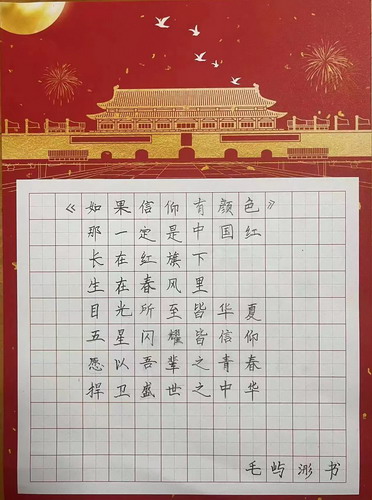 《如果信仰有颜色》
那一定是中国红
长在红旗下
生在春风里
目光所至皆华夏
五星闪耀皆信仰
愿以吾辈之青春
捍卫盛世之中华
毛屿浵书